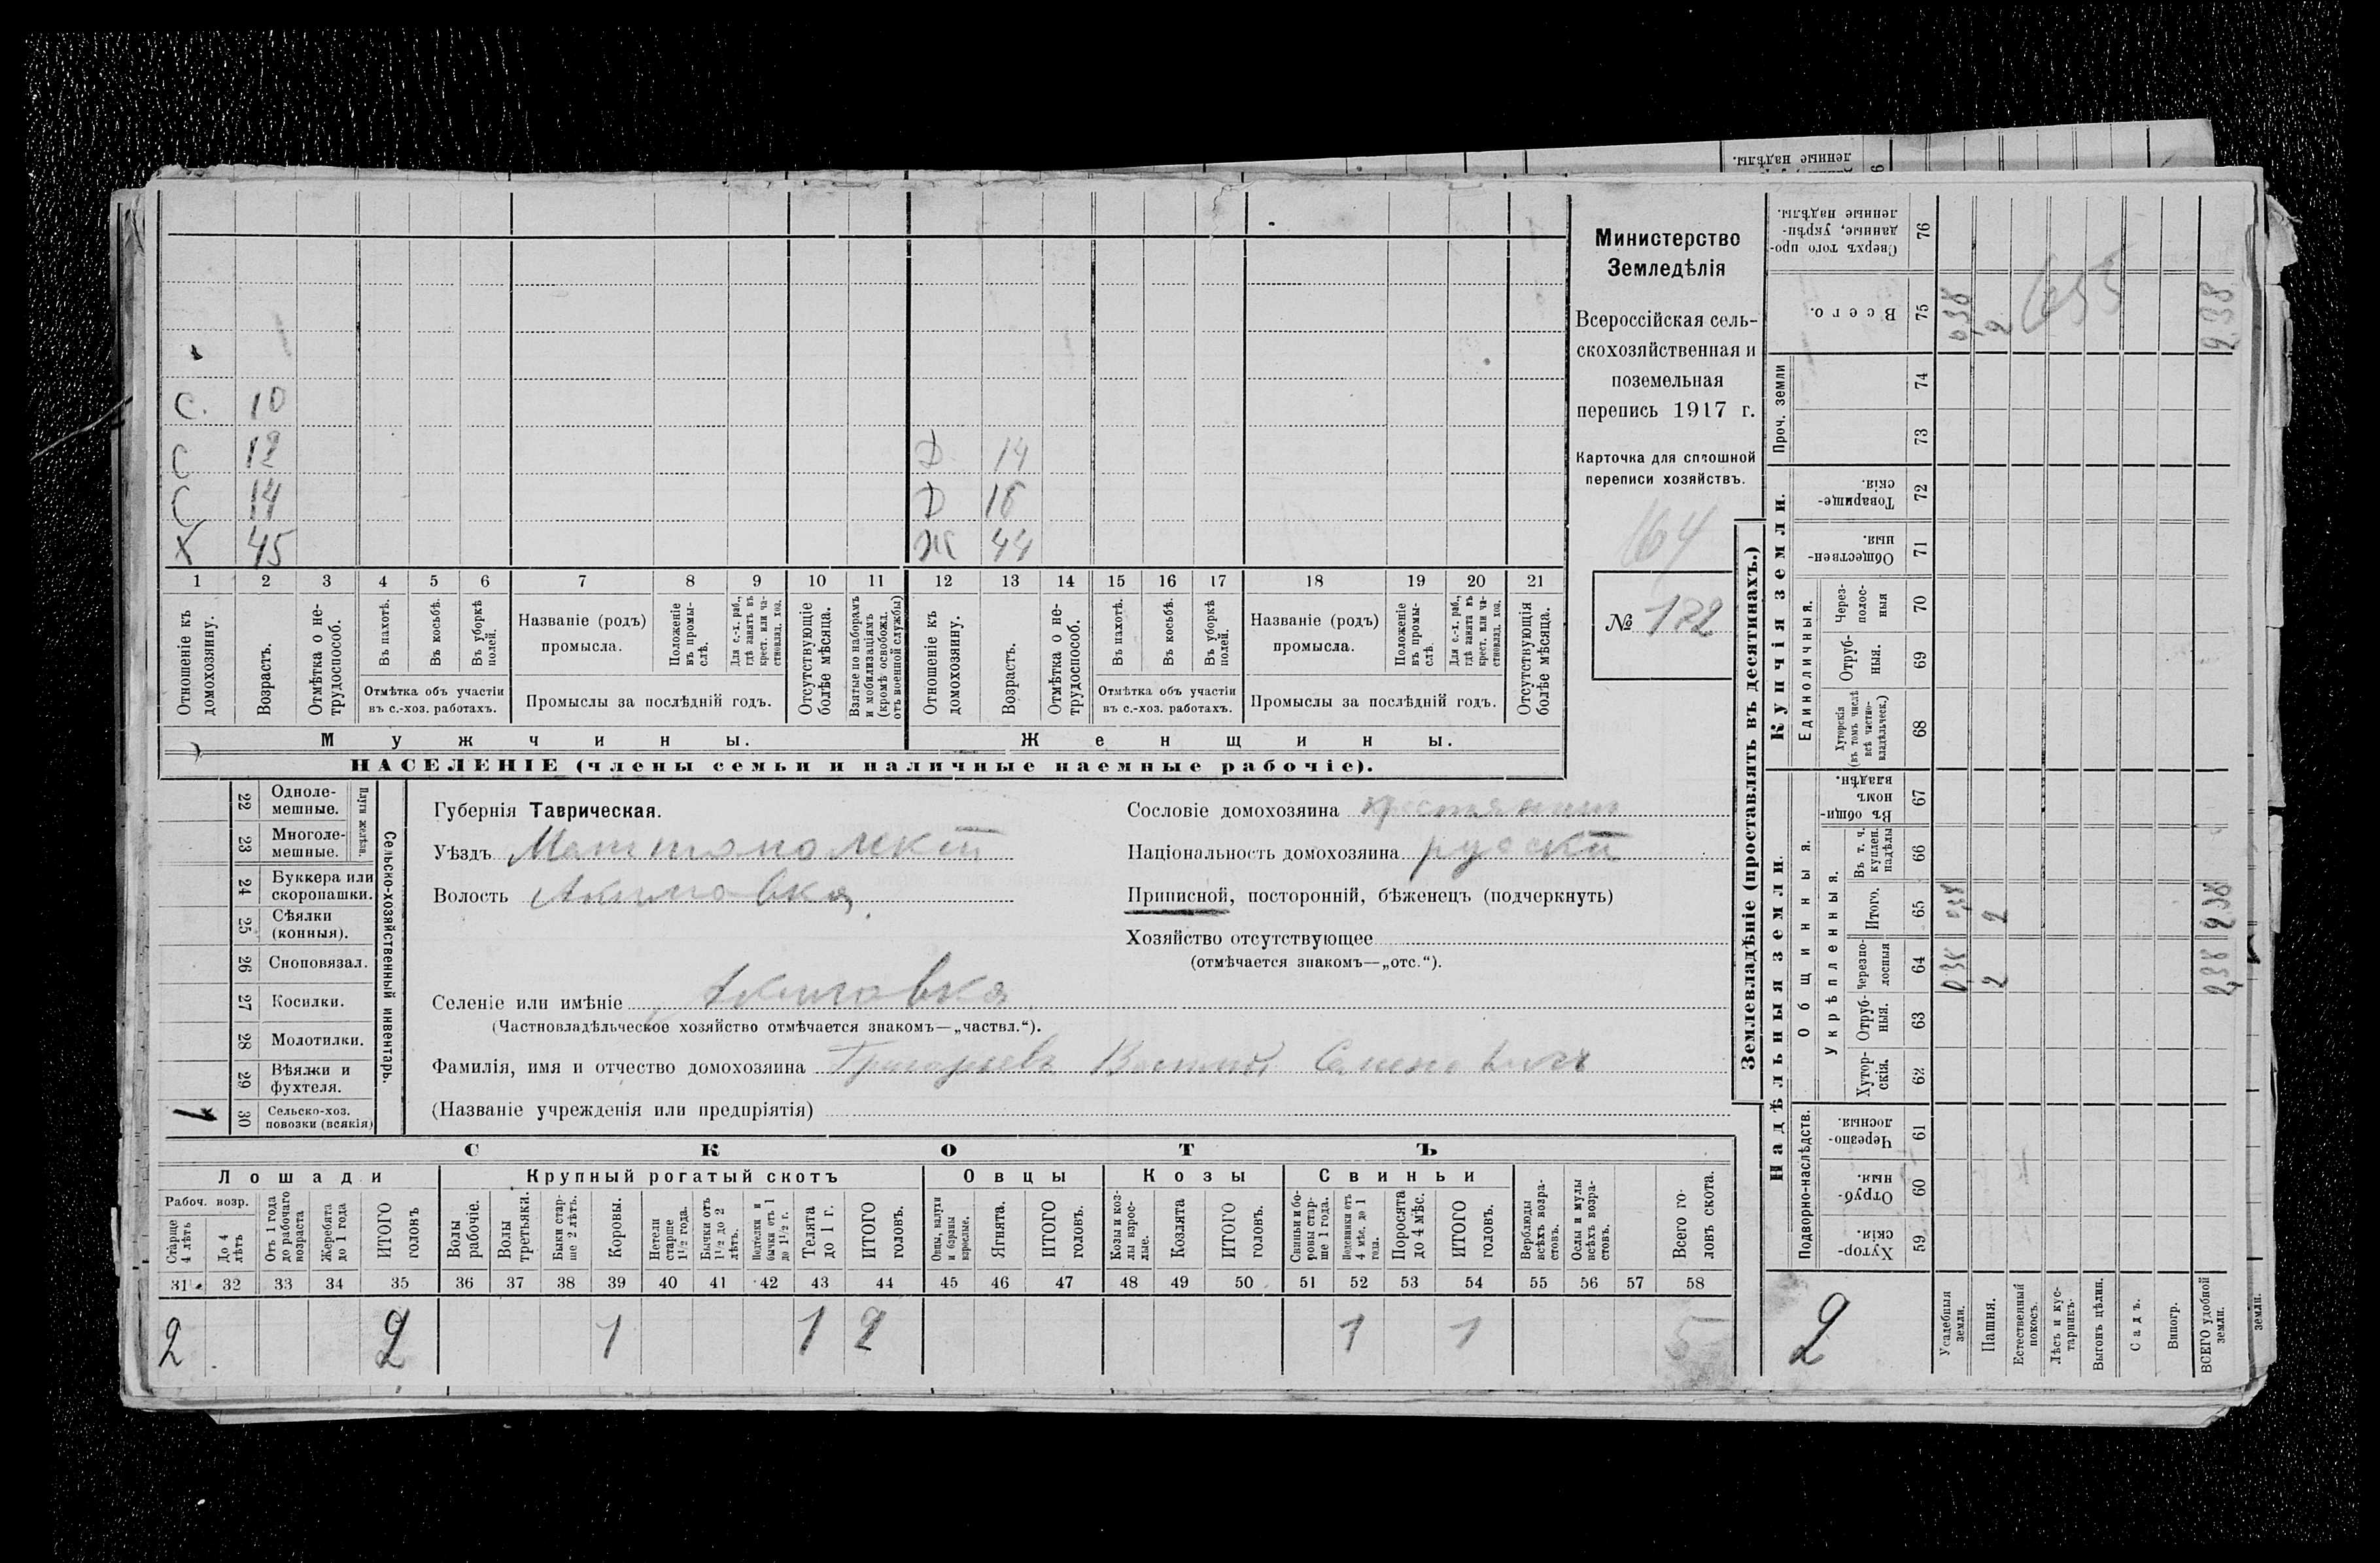 С. 10
С 12 Д 14
С 14 Д 16
Х 45 Ж 44
1 2 3 4 5 6 7 8 9 10 11 12 13 14 15 16 17 18 19 20 21
Отношеніе къ домохозяину.
Возрастъ.
Отмѣтка о не-трудоспособ.
Въ пахотѣ.
Въ косьбѣ.
Въ уборкѣ полей.
Отмѣтка объ участіи въ с.-хоз. работахъ.
Названіе (родъ) промысла.
Положеніе въ промы-слѣ.
Для с.-х. раб., гдѣ занятъ въ крест. или ча-стновлад. хоз.
Промыслы за послѣдній годъ.
Отсутствующіе болѣе мѣсяца.
Взятые по наборамъ и мобилизаціямъ (кромѣ освобожд. отъ военной службы)
Отношеніе къ домохозяину.
Возрастъ.
Отмѣтка о не-трудоспособ.
Въ пахотѣ.
Въ косьбѣ.
Въ уборкѣ полей.
Отмѣтка объ участіи въ с.-хоз. работахъ.
Названіе (родъ) промысла.
Положеніе въ промы-слѣ.
Для с.-х. раб., гдѣ занята въ крест. или ча-стновлад. хоз.
Промыслы за послѣдній годъ.
Отсутствующія болѣе мѣсяца.
Мужчины. Женщины.
НАСЕЛЕНІЕ (члены семьи и наличные наемные рабочіе).
Министерство
Земледѣлія
Всероссійская сель-
скохозяйственная и
поземельная
перепись 1917 г.
Карточка для сплошной
переписи хозяйствъ.
164
№ 122
22 Одноле-мешные.
23 Многоле-мешные.
Плуги желѣзн.
24 Буккера или скоропашки.
25 Сѣялки (конныя).
26 Сноповязал.
27 Косилки.
28 Молотилки.
29 Вѣялки и фухтеля.
1 30 Сельско-хоз. повозки (всякія)
Сельско-хозяйственный инвентарь.
Губернія Таврическая.
Уѣздъ
Волость Акимовка
Селеніе или имѣніе Акимовка
(Частновладѣльческое хозяйство отмѣчается знакомъ—„частвл.“).
Фамилія, имя и отчество домохозяина Григорьевъ Василій Семеновичъ
(Названіе учрежденія или предпріятія)
Сословіе домохозяина крестянинъ
Національность домохозяина русскій
Приписной, посторонній, бѣженецъ (подчеркнуть)
Хозяйство отсутствующее
(отмѣчается знакомъ—„отс.“).
СКОТЪ
Лошади Крупный рогатый скотъ Овцы Козы Свиньи
Рабоч. возр.
Старше 4 лѣтъ
До 4 лѣтъ
Отъ 1 года до рабочаго возраста
Жеребята до 1 года
ИТОГО головъ
Волы рабочіе.
Волы третьяки.
Быки стар-ше 2 лѣтъ.
Коровы.
Нетели старше 1½ года.
Бычки отъ 1½ до 2 лѣтъ.
Подтелки и бычки отъ 1 до 1½ г.
Телята до 1 г.
ИТОГО головъ.
Овцы, валухи и бараны взрослые.
Ягнята.
ИТОГО головъ.
Козы и коз-лы взрос-лые.
Козлята
ИТОГО головъ.
Свиньи и бо-ровы стар-ше 1 года.
Подсвинки отъ 4 мѣс. до 1 года.
Поросята до 4 мѣс.
ИТОГО головъ.
Верблюды всѣхъ возра-стовъ.
Ослы и мулы всѣхъ возра-стовъ.
Всего го-ловъ скота.
31 32 33 34 35 36 37 38 39 40 41 42 43 44 45 46 47 48 49 50 51 52 53 54 55 56 57 58
2 2 1 1 2 1 1 5
Землевладѣніе (проставлять въ десятинахъ.)
Надѣльныя земли. Купчія земли. Проч. земли
Подворно-наслѣдств.
Общинныя.
Укрѣпленныя.
Единоличныя.
Хутор-скія. 59
Отруб-ныя. 60
Черезпо-лосныя. 61
Хутор-скія. 62
Отруб-ныя. 63
Черезпо-лосныя 64
Итого. 65
Въ т. ч. куплен. надѣлы 66
Въ общин-номъ владѣн. 67
Хуторскія (въ томъ числѣ всѣ частно-владѣльческ.) 68
Отруб-ныя. 69
Через-полос-ныя 70
Обществен-ныя. 71
Товарище-скія. 72
73
74
Всего. 75
Сверхъ того про-данные, укрѣп-ленные надѣлы. 76
2
Усадебныя земли. 0,38 0,38 0,38
Пашня. 2 2 2
Естественный покосъ.
Лѣсъ и кус-тарникъ.
Выгонъ цѣлин.
Садъ.
Виногр.
ВСЕГО удобной земли. 2,38 2,38 2,38
655
земли.
ленные надѣлы.